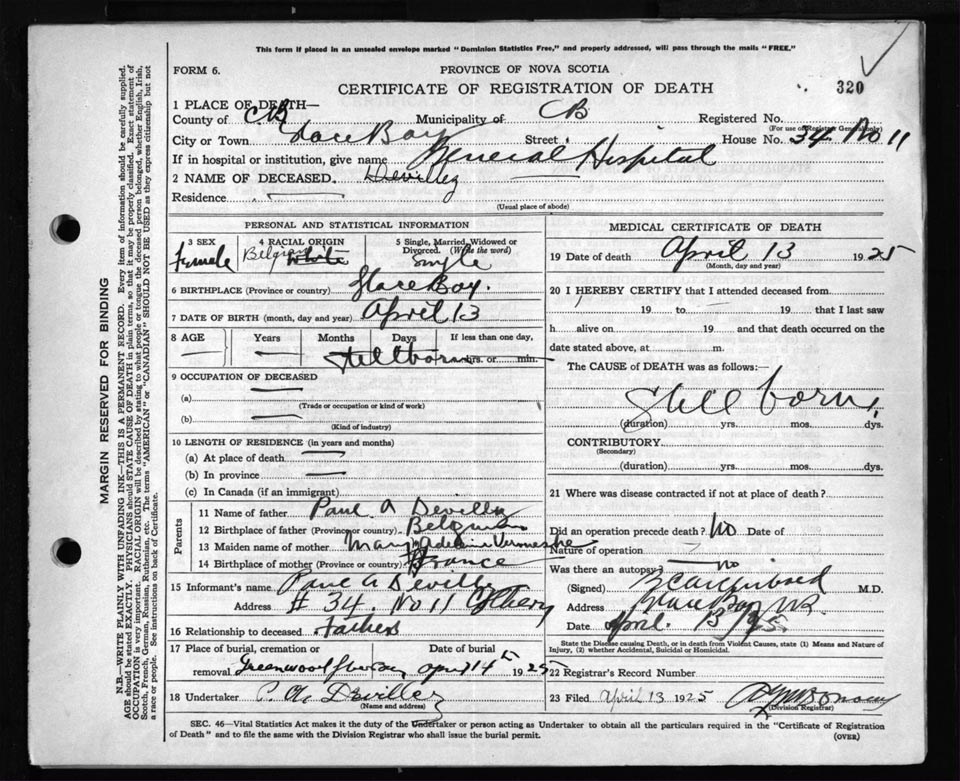 This form if placed in an unsealed envelope marked "Dominion Statistics Free," and properly addressed, will pass through the mails "FREE."
FORM 6.
PROVINCE OF NOVA SCOTIA
CERTIFICATE OF REGISTRATION OF DEATH
320
1 PLACE OF DEATH—
County of C.B. Municipality of CB Registered No.
(For use of Registrar General only)
City or Town Glace Bay Street House No. 34 No 11
If in hospital or institution, give name General Hospital
2 NAME OF DECEASED. Devilley
Residence
(Usual place of abode)
PERSONAL AND STATISTICAL INFORMATION
3 SEX 4 RACIAL ORIGIN 5 Single, Married, Widowed or Divorced. (Write the word)
Female Belgian White Single
6 BIRTHPLACE (Province or country) Glace Bay.
7 DATE OF BIRTH (month, day and year) April 13
8 AGE Years Months Days If less than one day,
Stillborn hrs. or min.
9 OCCUPATION OF DECEASED
(a)
(Trade or occupation or kind of work)
(b)
(Kind of industry)
10 LENGTH OF RESIDENCE (in years and months)
(a) At place of death
(b) In province
(c) In Canada (if an immigrant)
Parents
11 Name of father Paul A Devilley
12 Birthplace of father (Province or country) Belgium
13 Maiden name of mother
14 Birthplace of mother (Province or country) France
15 Informant's name Paul A Devilley
Address # 34. No 11
16 Relationship to deceased Father
17 Place of burial, cremation or removal Greenwood Date of burial April 14 1925
18 Undertaker P. A. Devilley
(Name and address)
MEDICAL CERTIFICATE OF DEATH
19 Date of death April 13 1925
(Month, day and year)
20 I HEREBY CERTIFY that I attended deceased from
19 to 19 that I last saw
h alive on 19 and that death occurred on the
date stated above, at m.
The CAUSE of DEATH was as follows:
Still born,
(duration) yrs. mos. dys.
CONTRIBUTORY.
(Secondary)
(duration) yrs. mos. dys.
21 Where was disease contracted if not at place of death?
Did an operation precede death? No Date of
Nature of operation
Was there an autopsy? no
(Signed) M.D.
Address Glace Bay NS.
Date April 13/25
State the Disease causing Death, or in death from Violent Causes, state (1) Means and Nature of Injury, (2) whether Accidental, Suicidal or Homicidal.
22 Registrar's Record Number
23 Filed April 13 1925
(Division Registrar)
SEC. 46—Vital Statistics Act makes it the duty of the Undertaker or person acting as Undertaker to obtain all the particulars required in the "Certificate of Registration
of Death" and to file the same with the Division Registrar who shall issue the burial permit.
(OVER)
MARGIN RESERVED FOR BINDING
N.B.—WRITE PLAINLY WITH UNFADING INK—THIS IS A PERMANENT RECORD. Every item of information should be carefully supplied.
AGE should be stated EXACTLY. PHYSICIANS should STATE CAUSE OF DEATH in plain terms, so that it may be properly classified. Exact statement of
OCCUPATION is very important. RACIAL ORIGIN will be described by stating to what people or tongue the deceased person belonged, whether English, Irish,
Scotch, French, German, Russian, Ruthenian, etc. The terms "AMERICAN" or "CANADIAN" SHOULD NOT BE USED as they express citizenship but not
a race or people. See instructions on back of Certificate.